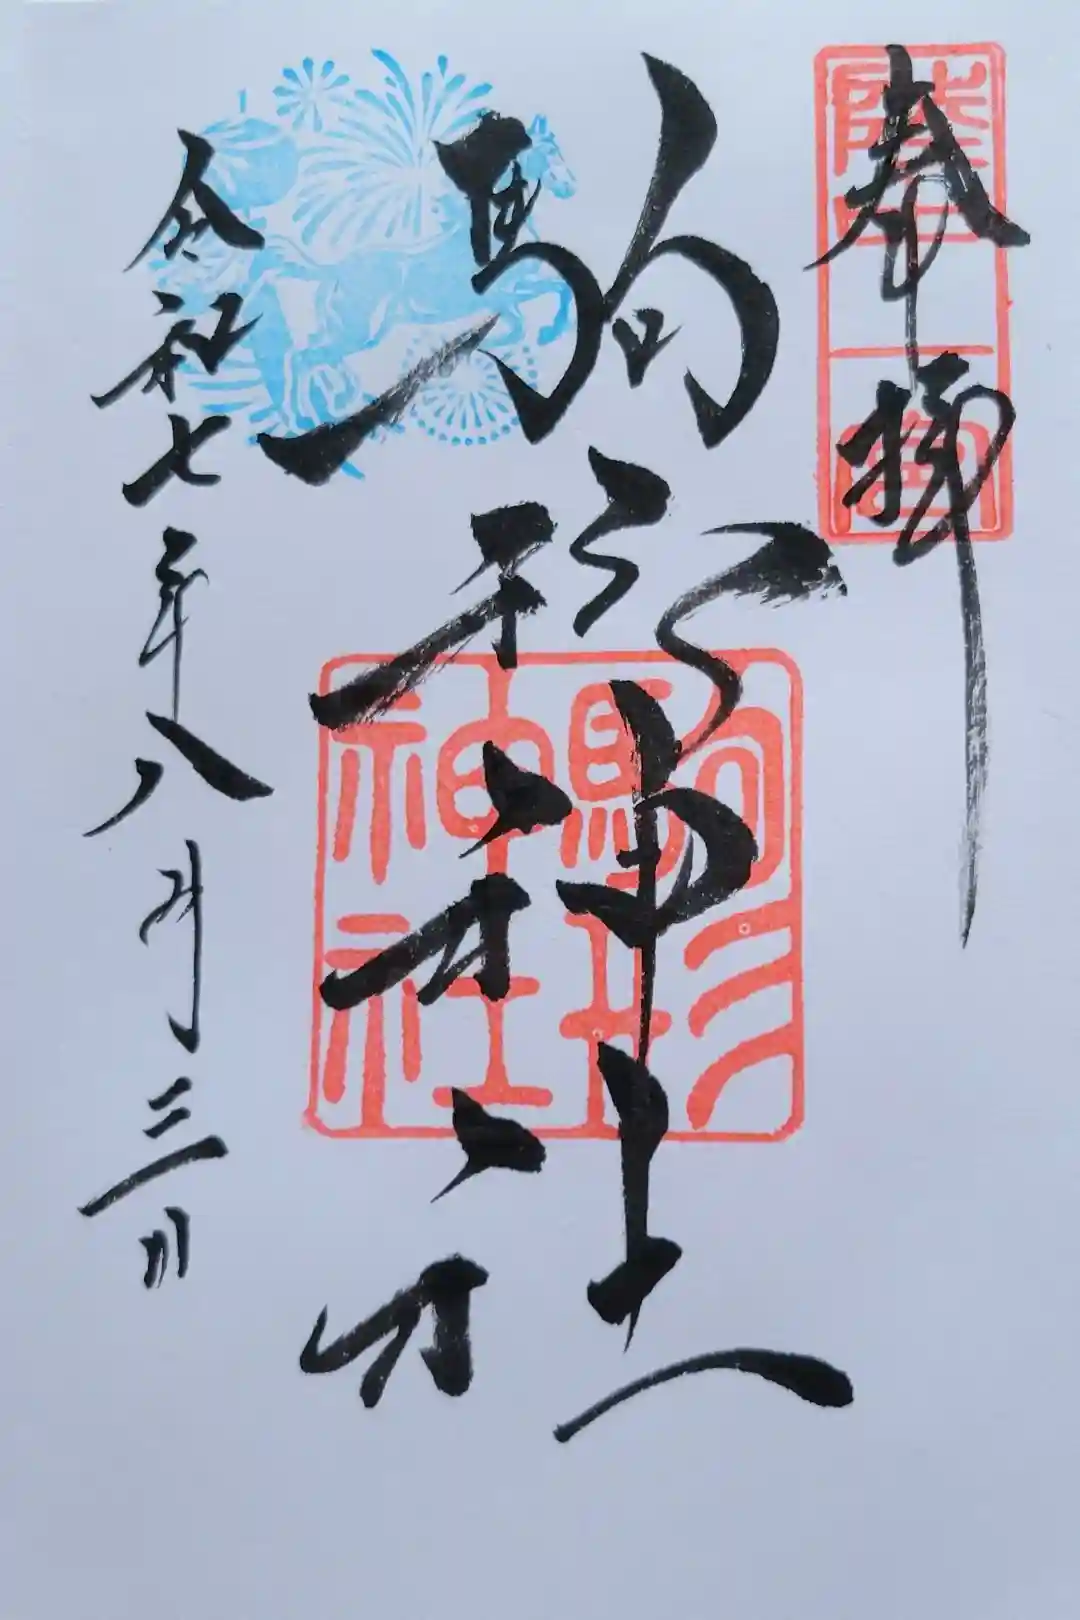 奉拝
陸中一宮
駒形神社
駒形神社
令和七年八月三日